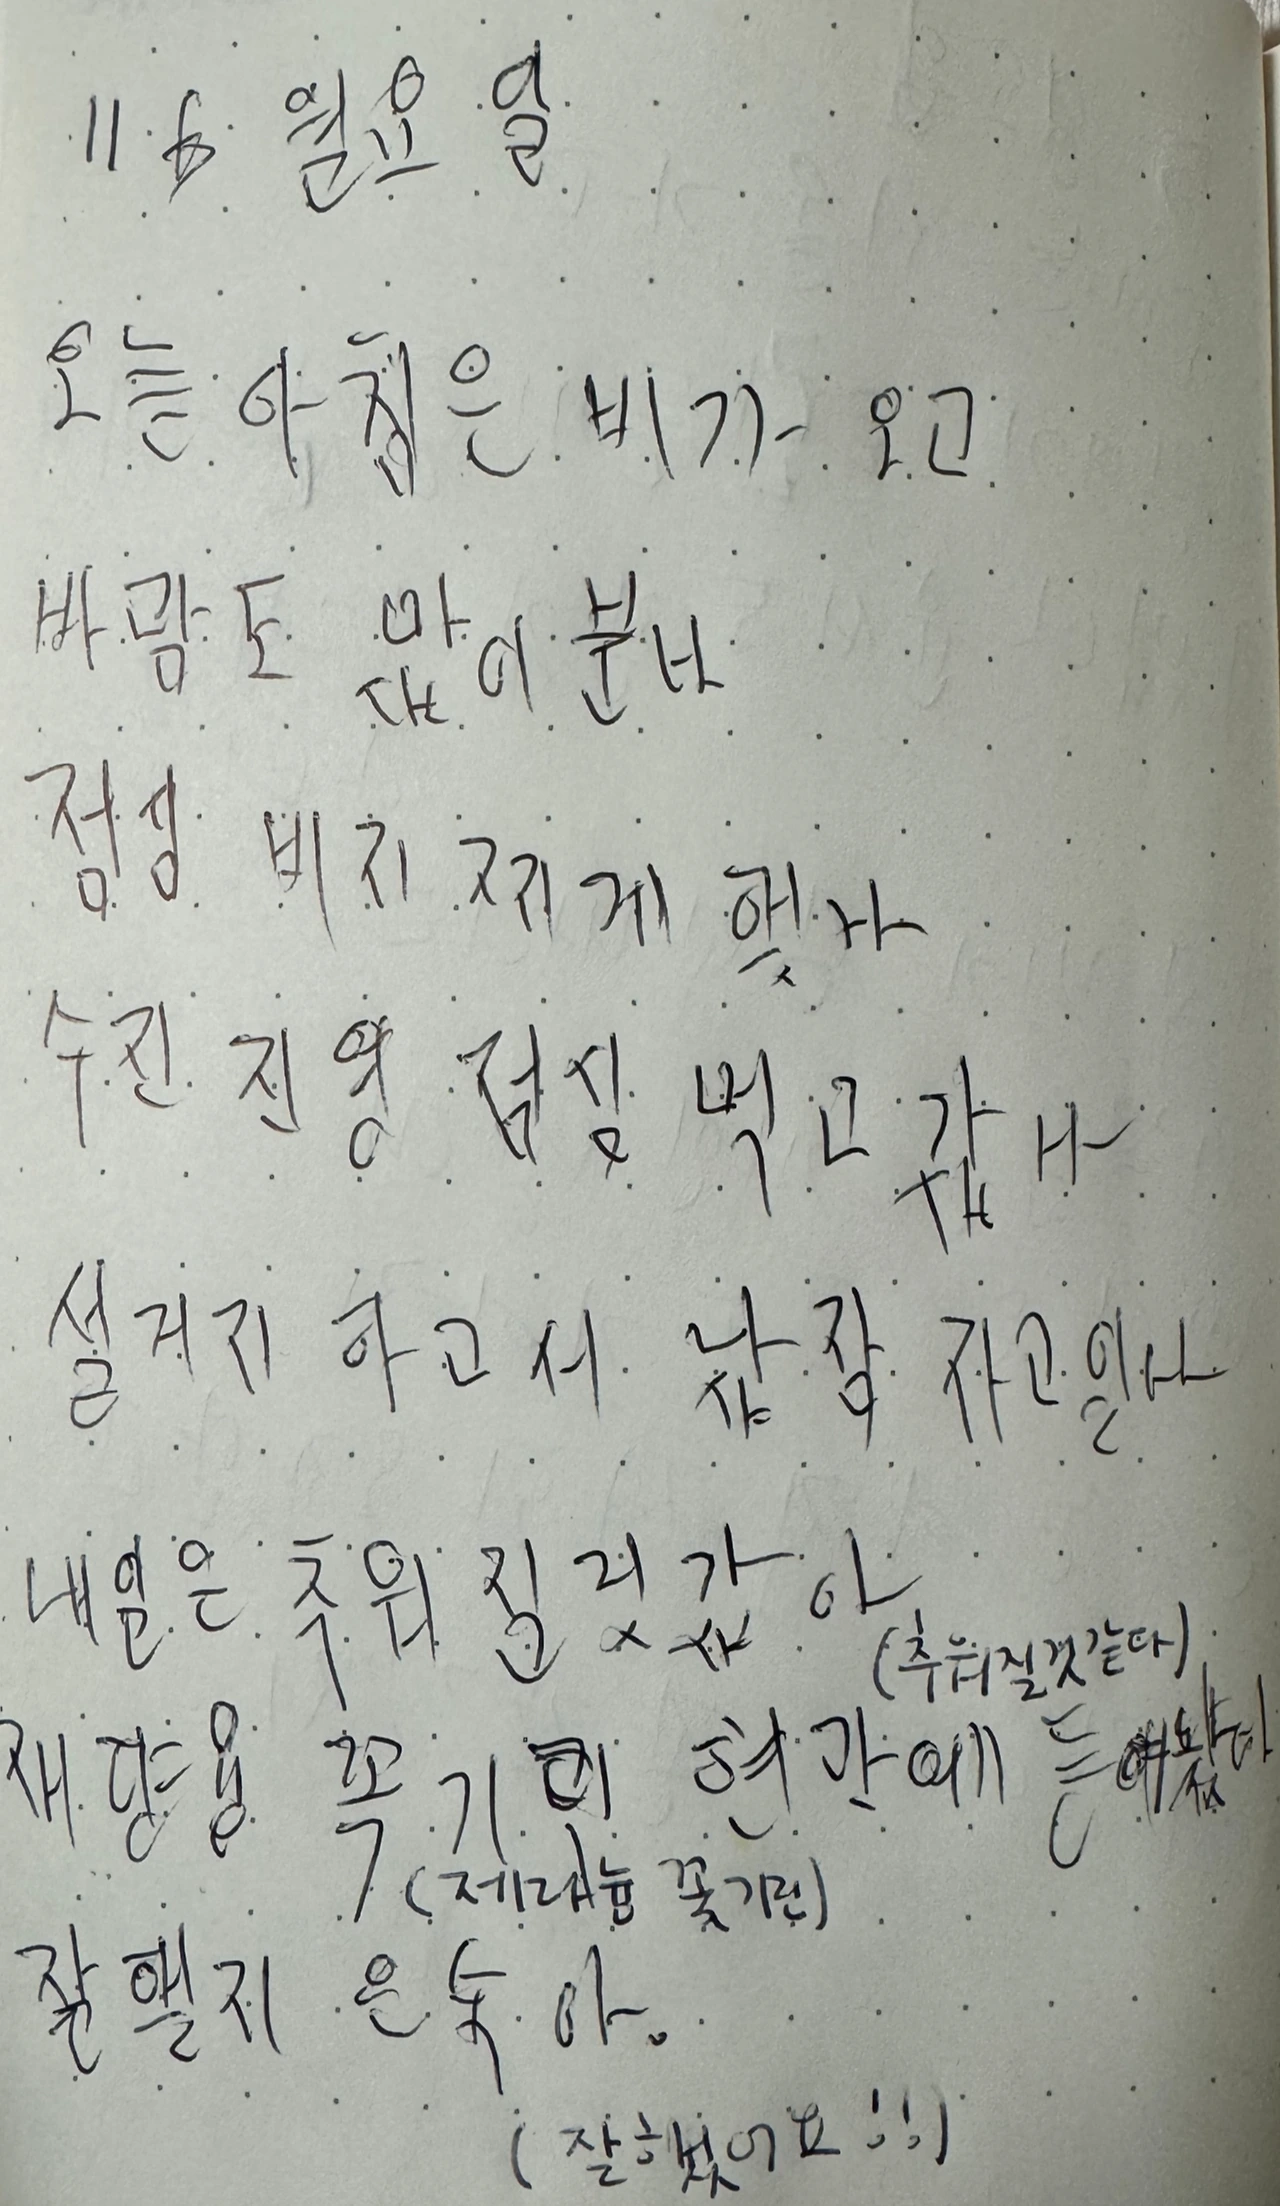 11.6 월요일
오늘 아침은 비가 오고
바람도 많이 분나
점심 비지 찌게 햇나
수진 진영 점심 먹고 갔나
설거지 하고서 낮잠 자고일나
내일은 추워 질 것 같 아
(추워질것같다)
재랑용 꼭기린 현간에 들여놨다
(제라늄 꽃기린)
잘했지 은숙아.
(잘했었어요!!!)